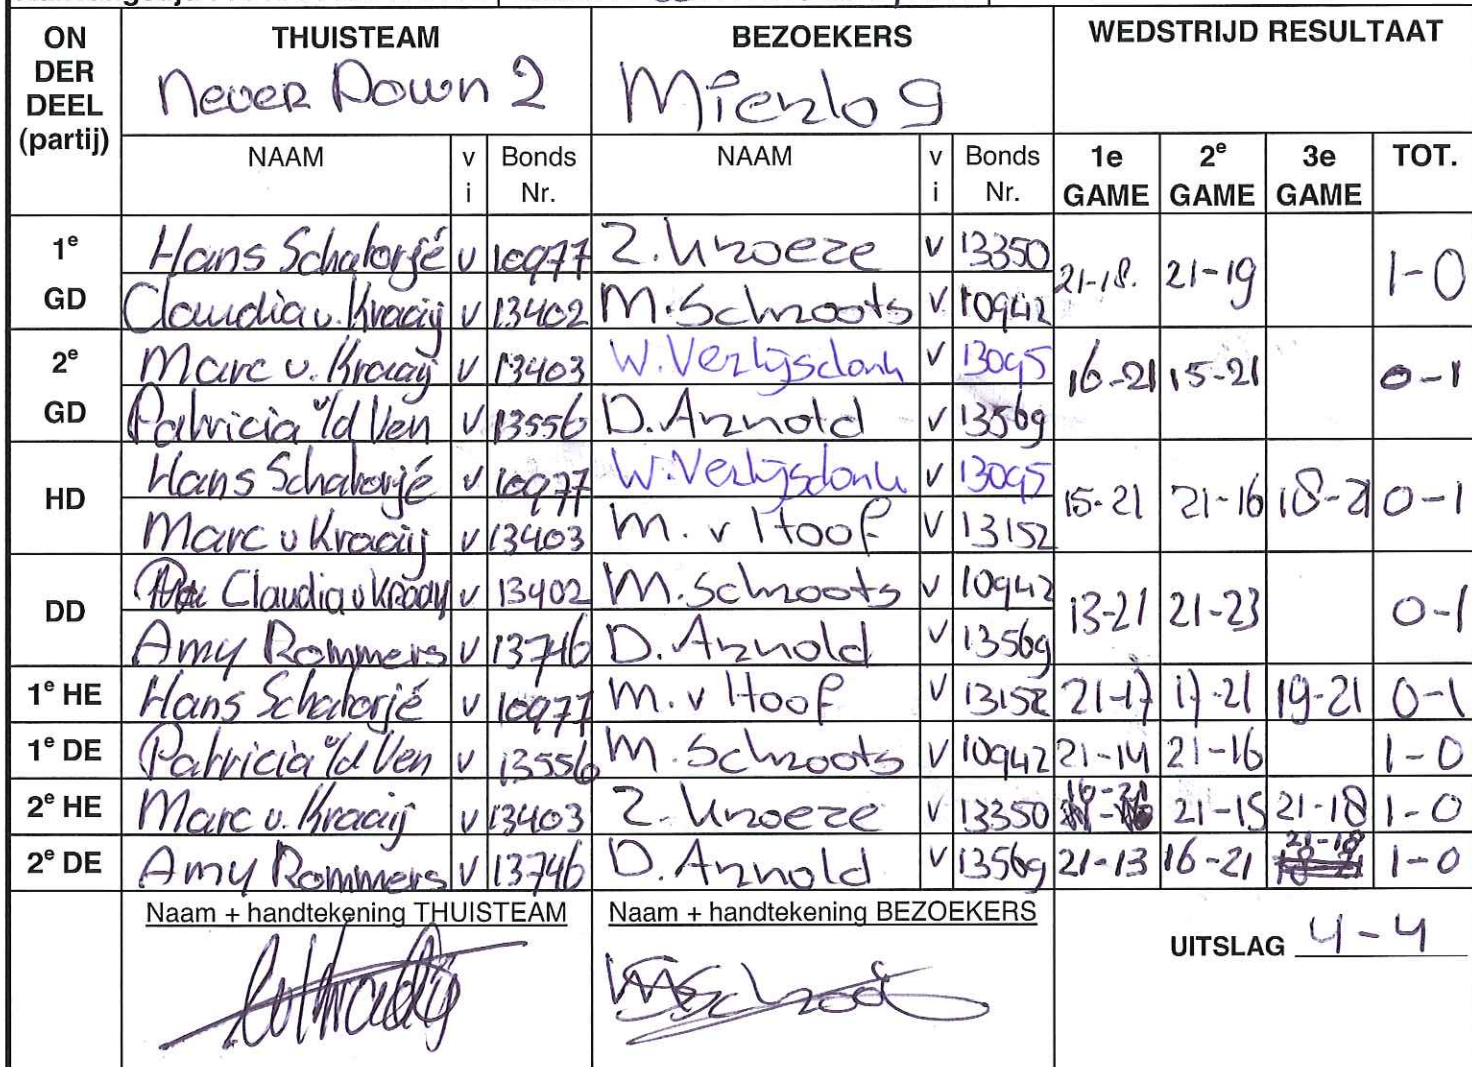 ON DER DEEL (partij) THUISTEAM BEZOEKERS WEDSTRIJD RESULTAAT
Never Down 2 Mierlo 9
NAAM v i Bonds Nr. NAAM v i Bonds Nr. 1e GAME 2e GAME 3e GAME TOT.
1e GD Hans Schatorjé v 10977 Z. Kroeze v 13350 21-18. 21-19 1-0
Claudia v. Kraaij v 13402 M. Schroots v 10942
2e GD Marc v. Kraaij v 13403 W. Verlijsdonk v 13095 16-21 15-21 0-1
Patricia v/d Ven v 13556 D. Arnold v 13569
HD Hans Schatorjé v 10977 W. Verlijsdonk v 13095 15-21 21-16 18-21 0-1
Marc v Kraaij v 13403 M. v Hoof v 13152
DD Claudia v Kraaij v 13402 M. Schroots v 10942 13-21 21-23 0-1
Amy Rommers v 13746 D. Arnold v 13569
1e HE Hans Schatorjé v 10977 M. v Hoof v 13152 21-17 17-21 19-21 0-1
1e DE Patricia v/d Ven v 13556 M. Schroots v 10942 21-14 21-16 1-0
2e HE Marc v. Kraaij v 13403 Z. Kroeze v 13350 21-15 21-18 1-0
2e DE Amy Rommers v 13746 D. Arnold v 13569 21-13 16-21 21-18 1-0
Naam + handtekening THUISTEAM Naam + handtekening BEZOEKERS
UITSLAG 4-4